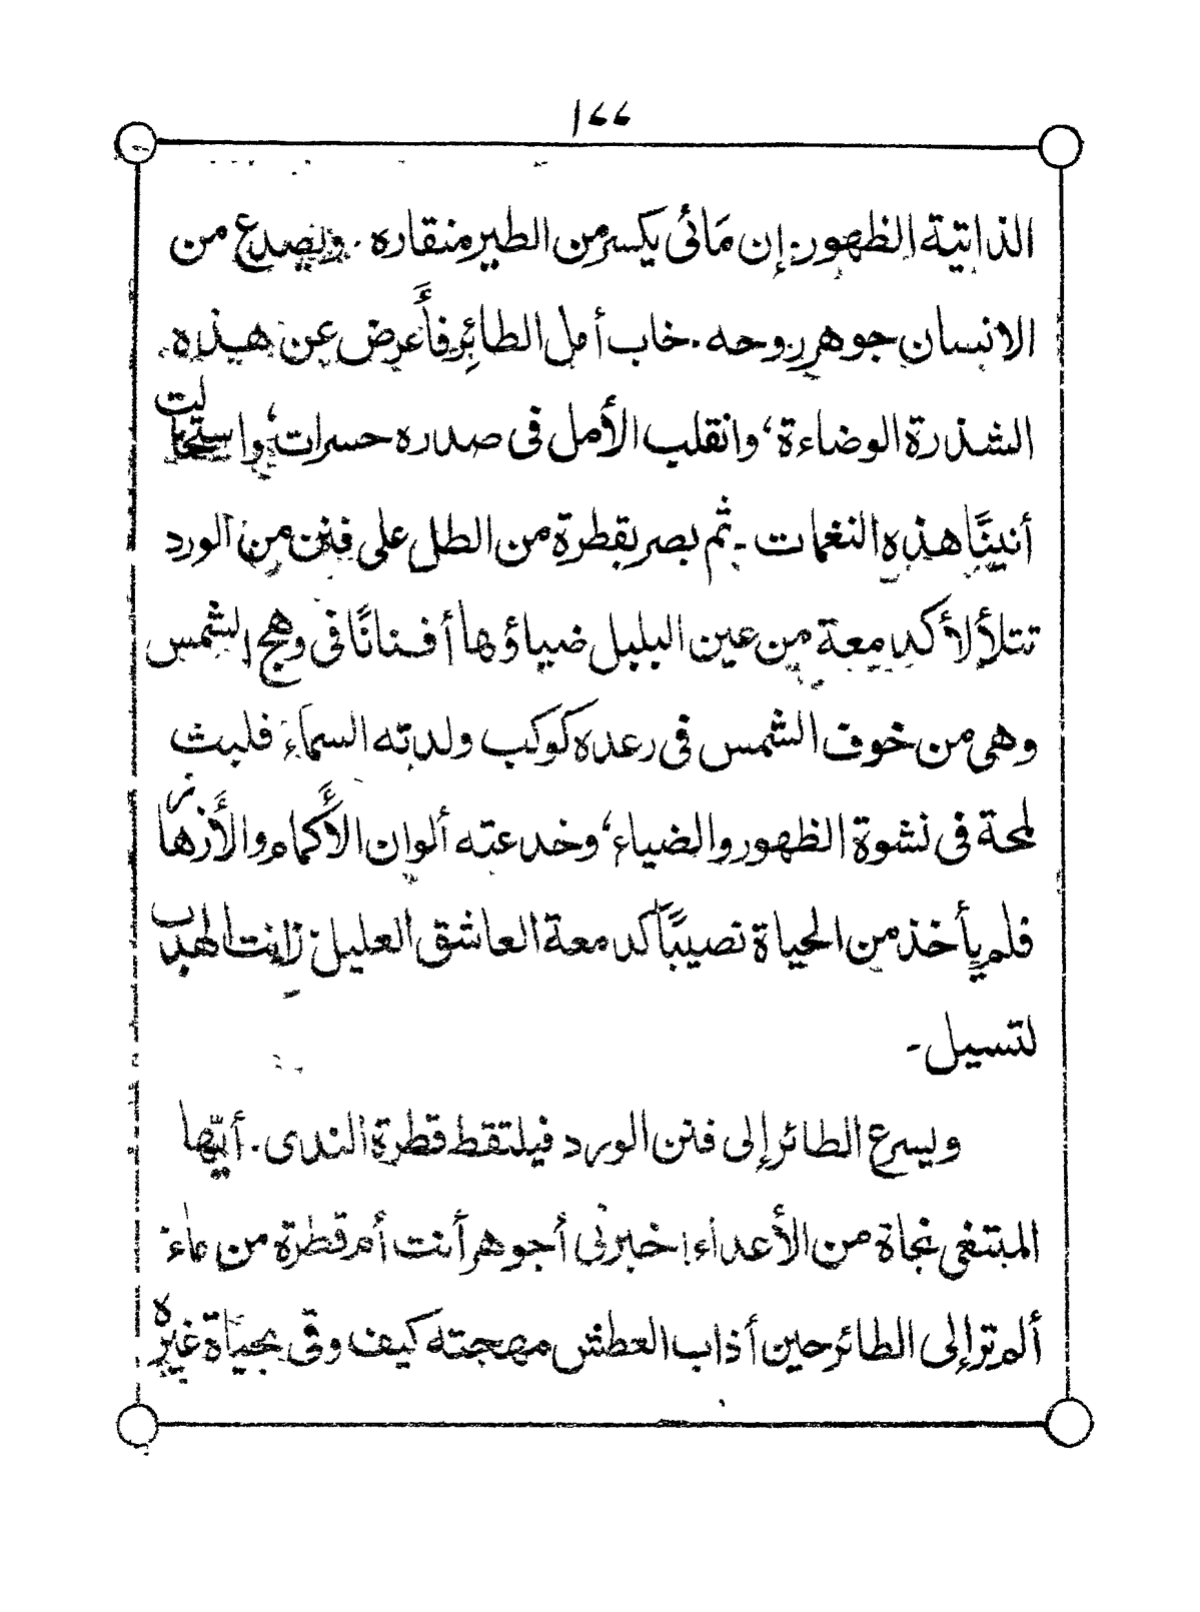 ١٧٧
الذاتية الظهور. إن مَائى يكسر من الطير منقاره. ويصدع من
الانسان جوهر روحه. خاب أمل الطائِر فأَعرض عن هذه
الشذرة الوضاءة، وانقلب الأمل فى صدره حسرات، واستحالت
أنينًا هذه النغمات ـ ثم بصر بقطرة من الطل على فنن من الورد
تتلألأ كدمعة من عين البلبل ضياؤها أفنانًا فى وهج الشمس
وهى من خوف الشمس فى رعده كوكب ولدته السماء فلبث
لمحة فى نشوة الظهور والضياء، وخدعته ألوان الأَكمام والأَزهار
فلم يأخذ من الحياة نصيبًا كدمعة العاشق العليل زانت الهدب
لتسيل ـ
ويسرع الطائر إلى فنن الورد فيلتقط قطرة الندى. أيّها
المبتغى نجاة من الأعداء! خبرنى أجوهر أنت أم قطرة من ماء
ألم تر إلى الطائر حين أذاب العطش مهجته كيف وقى بحياة غيره